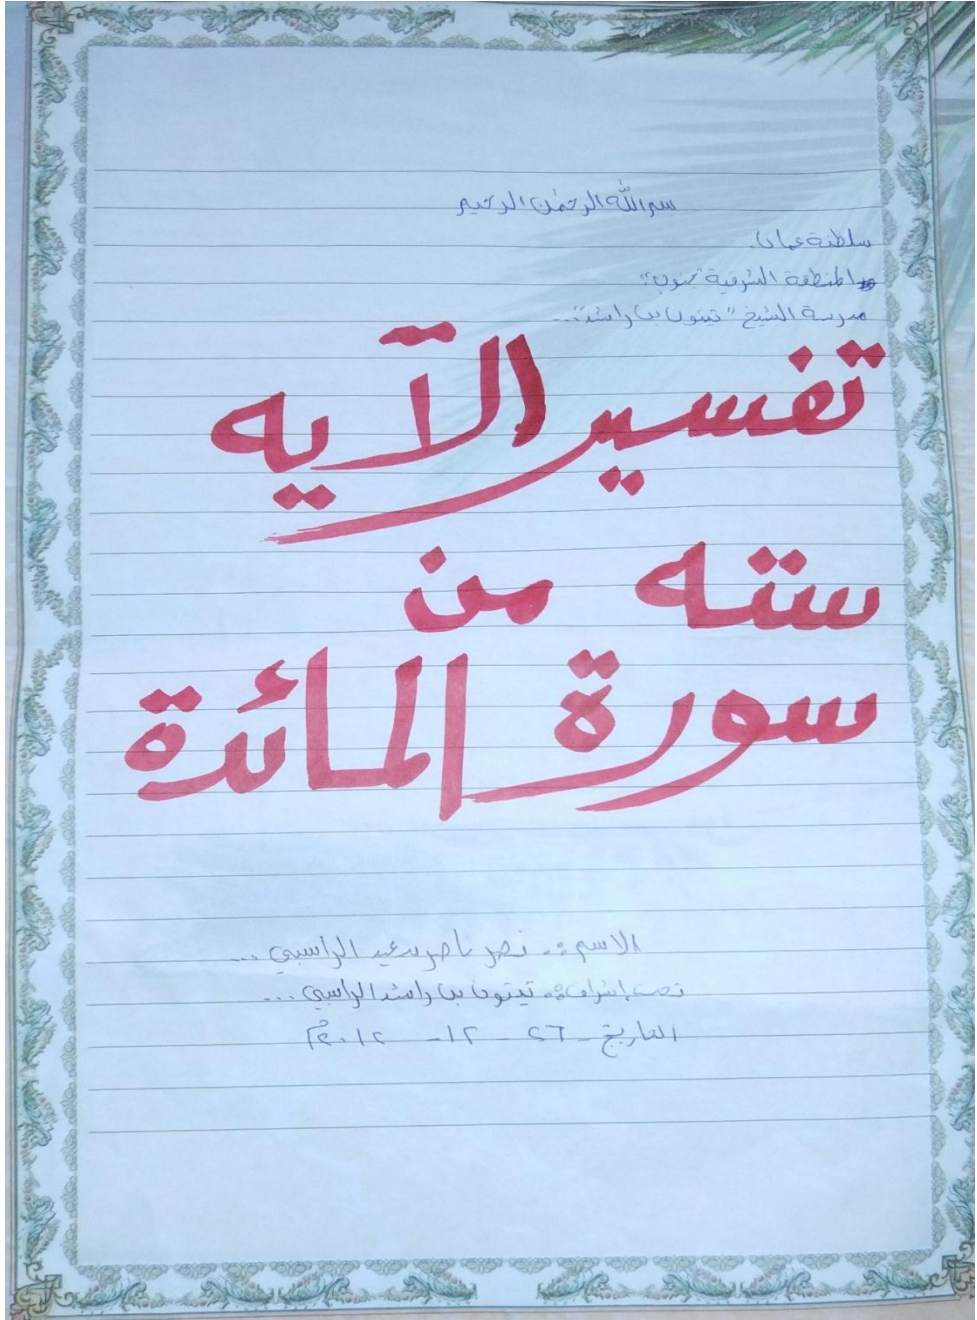 بسم الله الرحمٰن الرحيم
سلطنة عمان.
المنطقة الشرقية "جنوب"
مدرسة الشيخ "تيتون بن راشد"...
تفسير الآيه
سته من
سورة المائدة
الاسم :. نصر ناصر سعيد الراسبي ...
تحت إشراف :. تيتون بن راشد الراسبي ...
التاريخ - ٢٦ - ١٢ - ٢٠١٢م